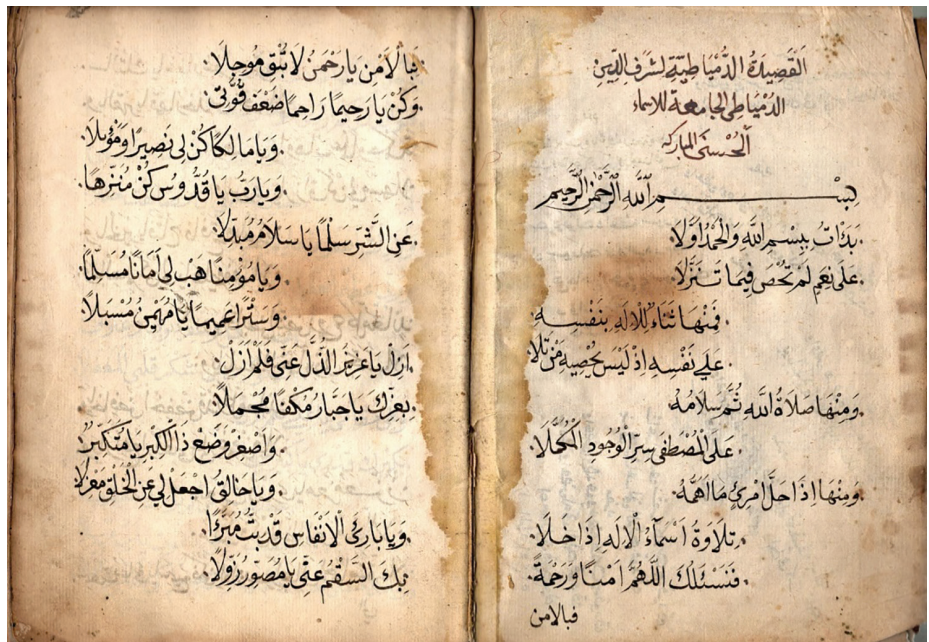 اَلْقَصِيدَةُ الدُّمْيَاطِيَّةِ لشَرَفِ الدِّينِ
الدُّمْيَاطِي الجَامِعَة للاسماء
اَلْحُسْنَى المباركه
بِسْمِ اللهِ الرَّحْمٰنِ الرَّحِيمِ
بَدَاْتُ بِبِسْمِ اللَّهِ وَالْحَمْدُ اَوَّلَا
عَلَى نِعَمٍ لَمْ تُحْصَ فِيمَا تَنَزَّلَا
فَمِنْهَا ثَنَاءٌ لِلْاِلَهِ بِنَفْسِهِ
عَلَي نَفْسِهِ اِذْ لَيْسَ يُحْصِيهِ مَنْ تَلَا
وَمِنْهَا صَلَاةُ اللَّهِ ثُمَّ سَلَامُهُ
عَلَى الْمُصْطَفَى سِرِّ الْوُجُودِ الْمُكَمَّلَا
وَمِنْهَا اِذَا حَلَّ امْرِئٍ مَا اَهَمَّهُ
تِلَاوَةُ اَسْمَآءِ الْاِلَهِ اِذَا خَلَا
فَنَسْئَلُكَ اللَّهُمَّ اَمْنًا وَرَحْمَةً
فبالامن
فَبِالْاَمْنِ يَا رَحْمَنُ لَا تُبْقِ مُوجِلَا
وَكُنْ يَا رَحِيمًا رَاحِمًا ضَعْفَ قُوَّتِي
وَيَا مَالِكًا كُنْ لِي نَصِيرًا وَمَؤْئِلَا
وَيَا رَبُّ يَا قُدُّوسُ كُنْ مُنَزِّهًا
عَنِ الشَّرِّ سَلْمًا يَا سَلَامُ مُبَدِّلَا
وَيَا مُؤْمِنًا هَبْ لِي اَمَانًا مُسَلِّمًا
وَسَتْرًا عَمِيمًا يَا مُهَيْمِنُ مُسْبَلَا
اَزِلْ يَا عَزِيزُ الذُّلَّ عَنِّى فَلَمْ اَزَلْ
بِعِزِّكَ يَا جَبَّارُ مَكْفًا مُجَمَّلَا
وَاَصْغِرْ وَضَعْ ذَا الْكِبْرِ يَا مُتَكَبِّرًا
وَيَا خَالِقُ اجْعَلْ لِي عَنِ الْخَلْقِ مَعْزِلَا
وَيَا بَارِئَ الْاَنْفَاسِ قَدْ بِتُّ مُبَرَّءًا
بِكَ السَّقْمُ عَنِّي يَا مُصَوِّرُ زُوِّلَا